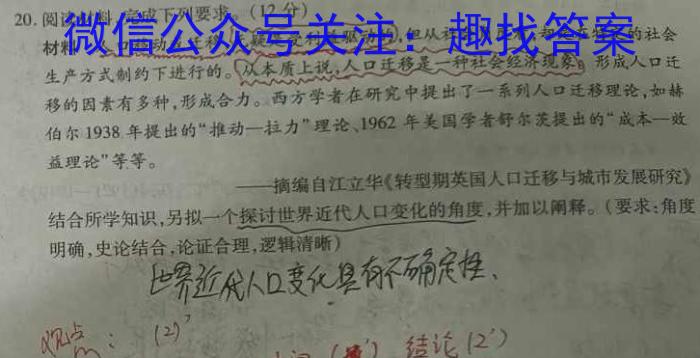 20. 阅读材料,完成下列要求。(12分)
微信公众号关注:趣找答案
材料 人口 迁移 的,但从 的社会
生产方式制约下进行的。从本质上说,人口迁移是一种社会经济现象。形成人口迁
移的因素有多种,形成合力。西方学者在研究中提出了一系列人口迁移理论,如赫
伯尔1938年提出的“推动—拉力”理论、1962年美国学者舒尔茨提出的“成本—效
益理论”等等。
——摘编自江立华《转型期英国人口迁移与城市发展研究》
结合所学知识,另拟一个探讨世界近代人口变化的角度,并加以阐释。(要求:角度
明确,史论结合,论证合理,逻辑清晰)
世界近代人口变化具有不确定性、
观点: (2)' 结论(2')